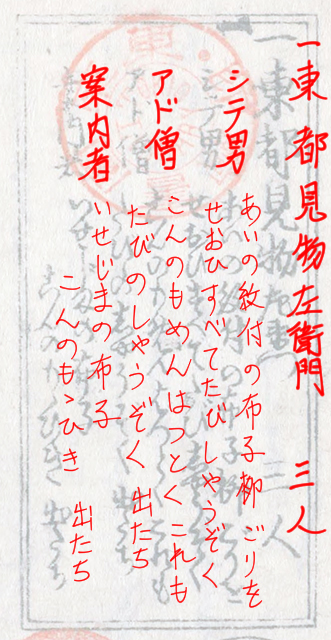 一東都見物左衛門 三人
シテ男
あいの紋付の布子柳ごりを
せおひすべてたびしやうぞく
アド僧
こんのもめんはつとくこれも
たびのしやうぞく出たち
案内者
いせじまの布子
こんのもゝひき 出たち